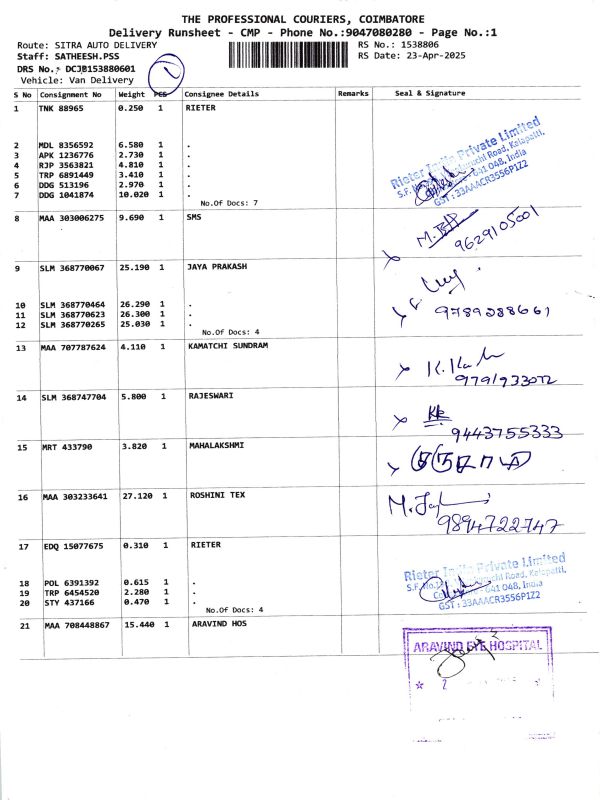 THE PROFESSIONAL COURIERS, COIMBATORE
Delivery Runsheet - CMP - Phone No.:9047080280 - Page No.:1
Route: SITRA AUTO DELIVERY
RS No.: 1538806
Staff: SATHEESH.PSS
RS Date: 23-Apr-2025
DRS No.: DCJB153880601
Vehicle: Van Delivery
1
S No Consignment No Weight PCS Consignee Details Remarks Seal & Signature
1 TNK 88965 0.250 1 RIETER
2 MDL 8356592 6.580 1 .
3 APK 1236776 2.730 1 .
4 RJP 3563821 4.810 1 .
5 TRP 6891449 3.410 1 .
6 DDG 513196 2.970 1 .
7 DDG 1041874 10.020 1 .
No.Of Docs: 7
Rieter India Private Limited
Road, Kalapatti,
641 048, India
GST : 33AAACR3556P1Z2
8 MAA 303006275 9.690 1 SMS
9629105001
9 SLM 368770067 25.190 1 JAYA PRAKASH
10 SLM 368770464 26.290 1 .
11 SLM 368770623 26.300 1 .
12 SLM 368770265 25.030 1 .
No.Of Docs: 4
9789288661
13 MAA 707787624 4.110 1 KAMATCHI SUNDRAM
14 SLM 368747704 5.800 1 RAJESWARI
9443755333
15 MRT 433790 3.820 1 MAHALAKSHMI
16 MAA 303233641 27.120 1 ROSHINI TEX
9894722747
17 EDQ 15077675 0.310 1 RIETER
18 POL 6391392 0.615 1 .
19 TRP 6454520 2.280 1 .
20 STY 437166 0.470 1 .
No.Of Docs: 4
Rieter India Private Limited
Road, Kalapatti,
641 048, India
GST : 33AAACR3556P1Z2
21 MAA 708448867 15.440 1 ARAVIND HOS
ARAVIND EYE HOSPITAL